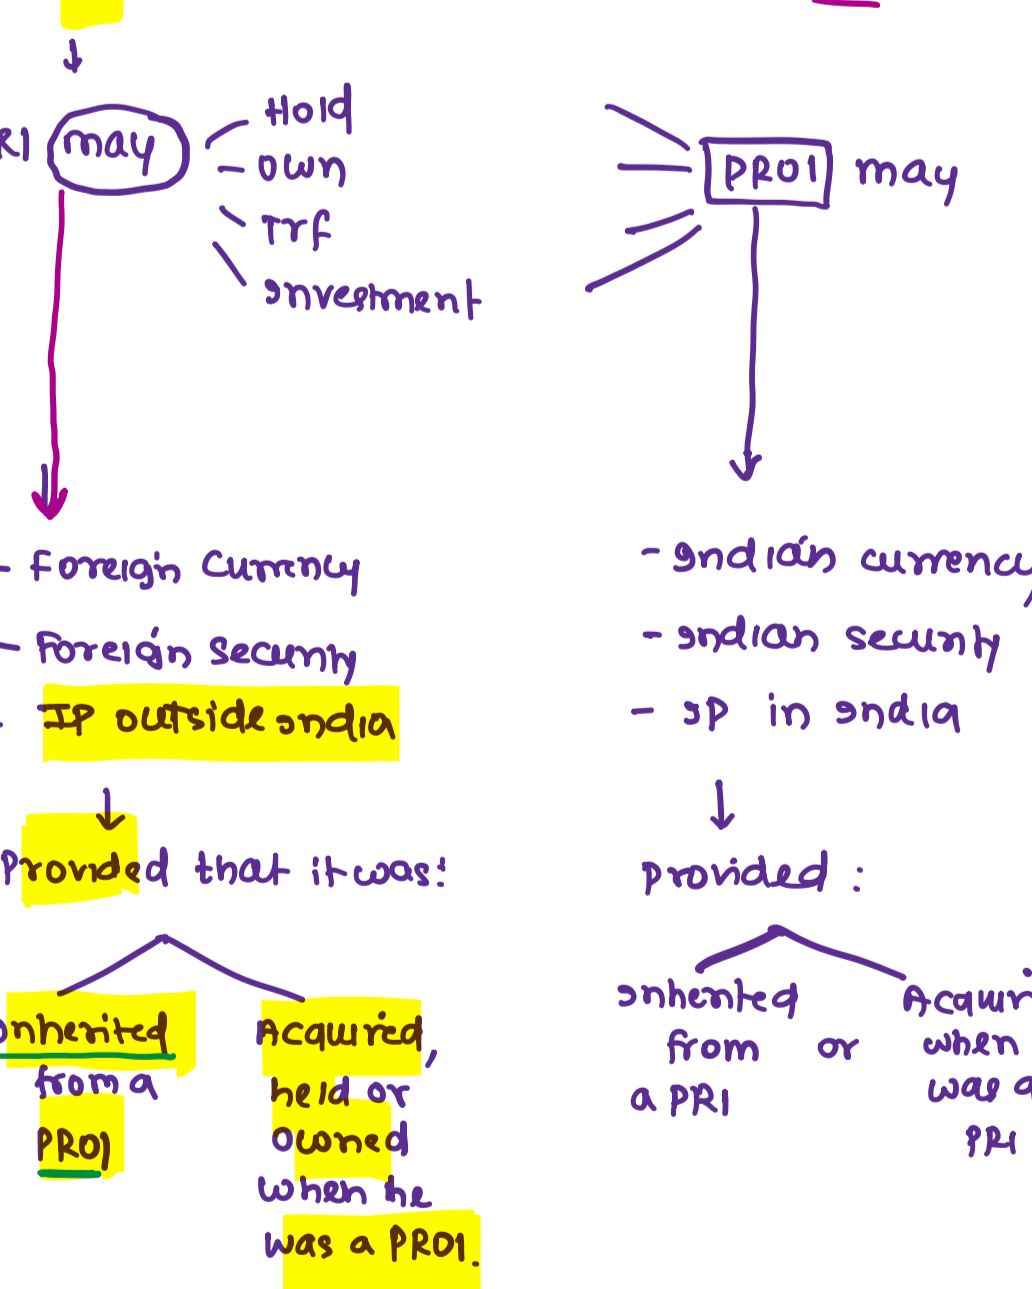 RI may
Hold
own
Trf
Investment
PROI may
- Foreign Currency
- Foreign security
- IP outside India
Provided that it was:
Inherited
from a
PROI
Acquired,
held or
owned
when he
was a PROI.
- Indian currency
- Indian security
- IP in India
Provided :
Inherited
from or
a PRI
when
was a
PRI